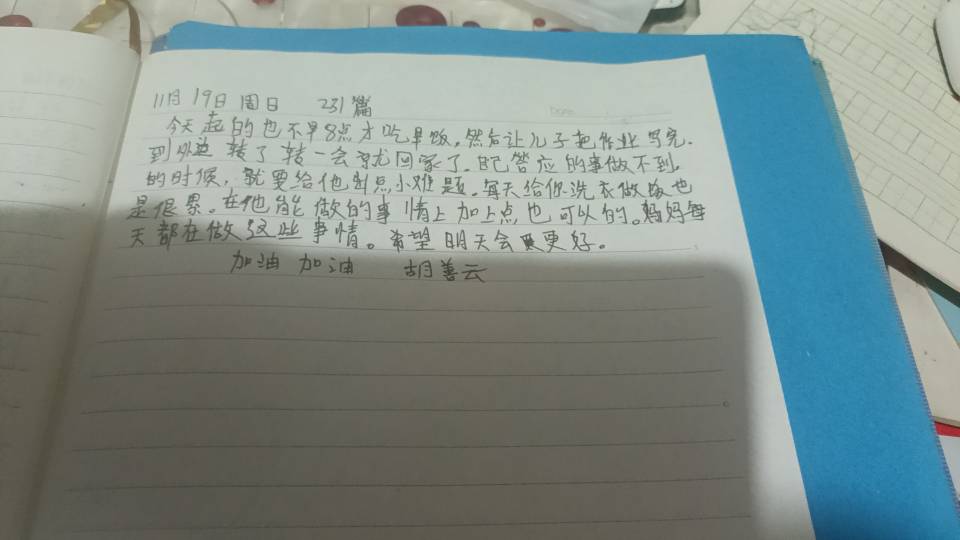 11月19日 周日 231篇
今天起的也不早8点才吃早饭,然后让儿子把作业写完.
到外边转了转一会就回家了.自己答应的事做不到.
的时候,就要给他出点小难题.每天给你洗衣做饭也
是很累。在他能做的事情上加上点也可以的。妈妈每
天都在做这些事情。希望明天会更好。
加油 加油 胡善云